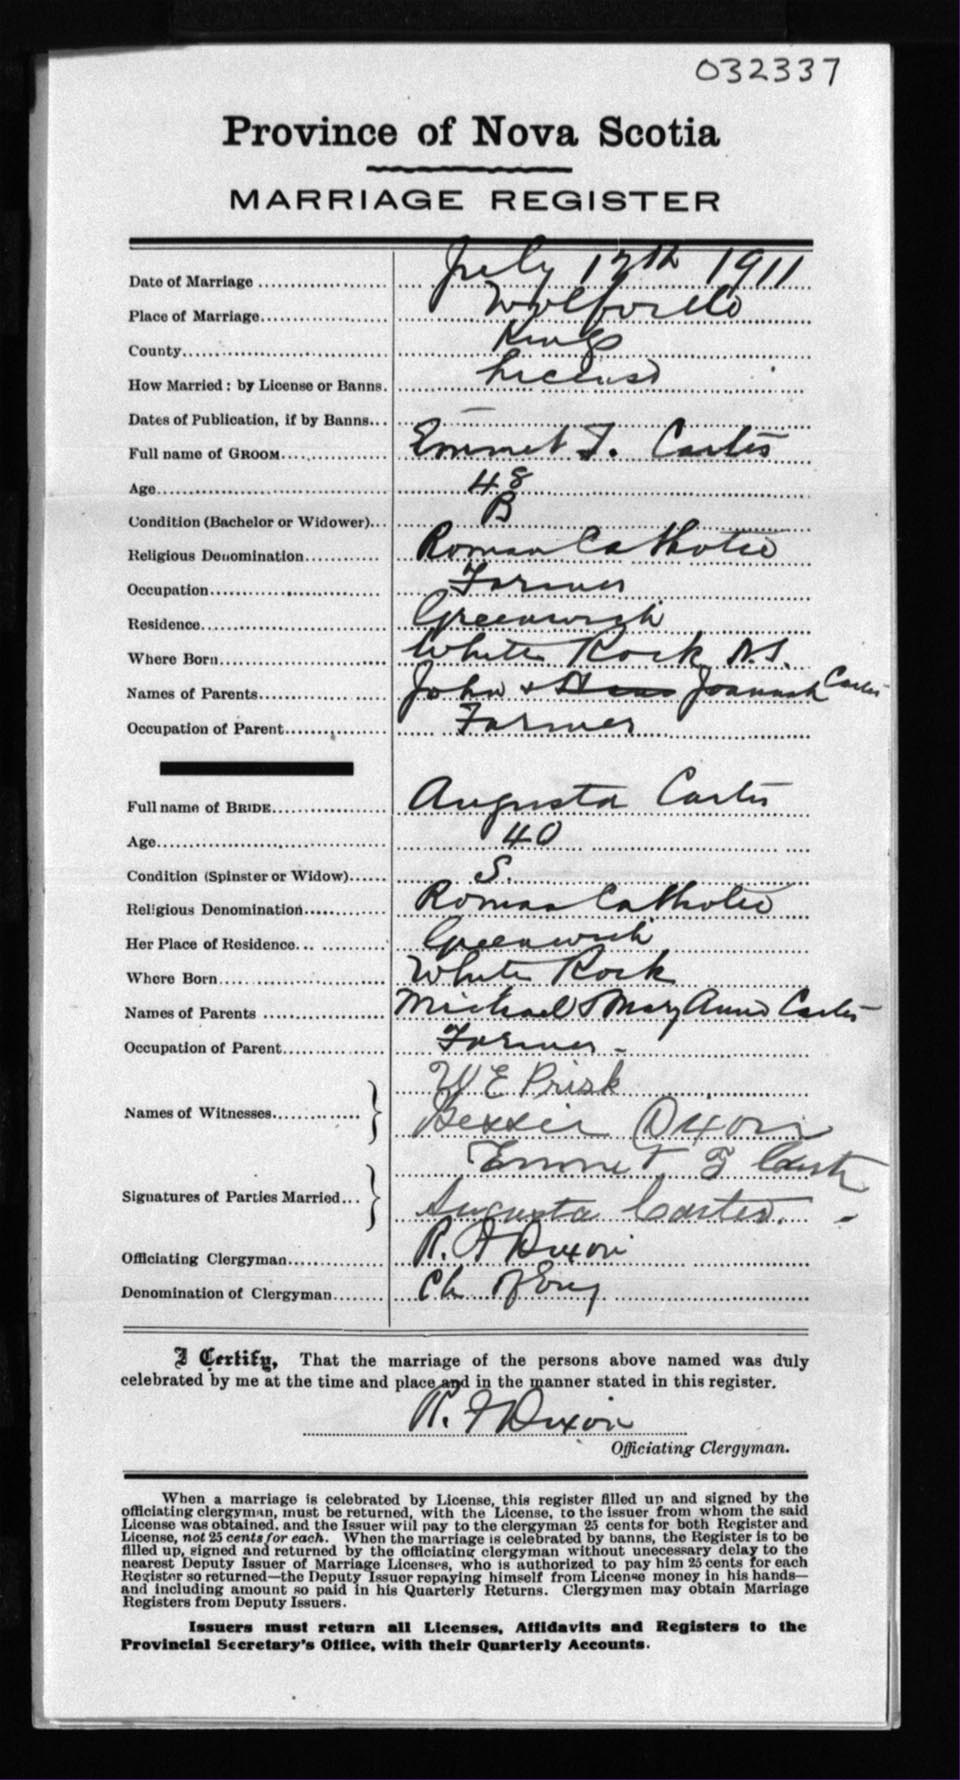 032337
Province of Nova Scotia
MARRIAGE REGISTER
Date of Marriage July 12th 1911
Place of Marriage Wolfville
County Kings
How Married: by License or Banns. License
Dates of Publication, if by Banns... —
Full name of GROOM Emmet F. Carter
Age 48
Condition (Bachelor or Widower)... B
Religious Denomination Roman Catholic
Occupation Farmer
Residence Greenwich
Where Born White Rock N.S.
Names of Parents John & Joannah Carter
Occupation of Parent Farmer
Full name of BRIDE Augusta Carter
Age 40
Condition (Spinster or Widow) S.
Religious Denomination Roman Catholic
Her Place of Residence Greenwich
Where Born White Rock
Names of Parents Michael & Mary Anne Carter
Occupation of Parent Farmer -
W E Prisk
Names of Witnesses
Bessie Dixon
Emmet F Carter
Signatures of Parties Married...
Augusta Carter.
Officiating Clergyman R. F Dixon
Denomination of Clergyman Ch of Eng
I Certify, That the marriage of the persons above named was duly
celebrated by me at the time and place and in the manner stated in this register.
R. F Dixon
Officiating Clergyman.
When a marriage is celebrated by License, this register filled up and signed by the
officiating clergyman, must be returned, with the License, to the issuer from whom the said
License was obtained, and the Issuer will pay to the clergyman 25 cents for both Register and
License, not 25 cents for each. When the marriage is celebrated by banns, the Register is to be
filled up, signed and returned by the officiating clergyman without unecessary delay to the
nearest Deputy Issuer of Marriage Licenses, who is authorized to pay him 25 cents for each
Register so returned—the Deputy Issuer repaying himself from License money in his hands—
and including amount so paid in his Quarterly Returns. Clergymen may obtain Marriage
Registers from Deputy Issuers.
Issuers must return all Licenses, Affidavits and Registers to the
Provincial Secretary's Office, with their Quarterly Accounts.